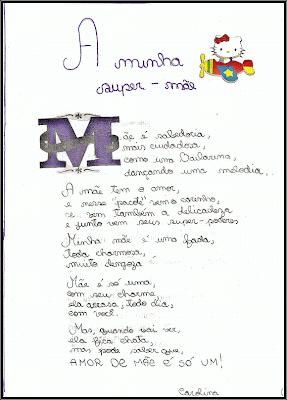 A minha
super-mãe
Mãe é sabedoria,
mais cuidadosa,
como uma Bailarina,
dançando uma melodia.
A mãe tem o amor,
e nesse "pacote" vem o carinho,
se vem também a delicadeza
e junto vem seus super-poderes
Minha mãe é uma fada,
toda charmosa,
muito dengoza
Mãe é só uma,
com seu charme,
ela arrasa, todo dia,
com você.
Mas, quando vai ver,
ela fica chata,
mas pode saber que,
AMOR DE MÃE É SÓ UM!
Carolina